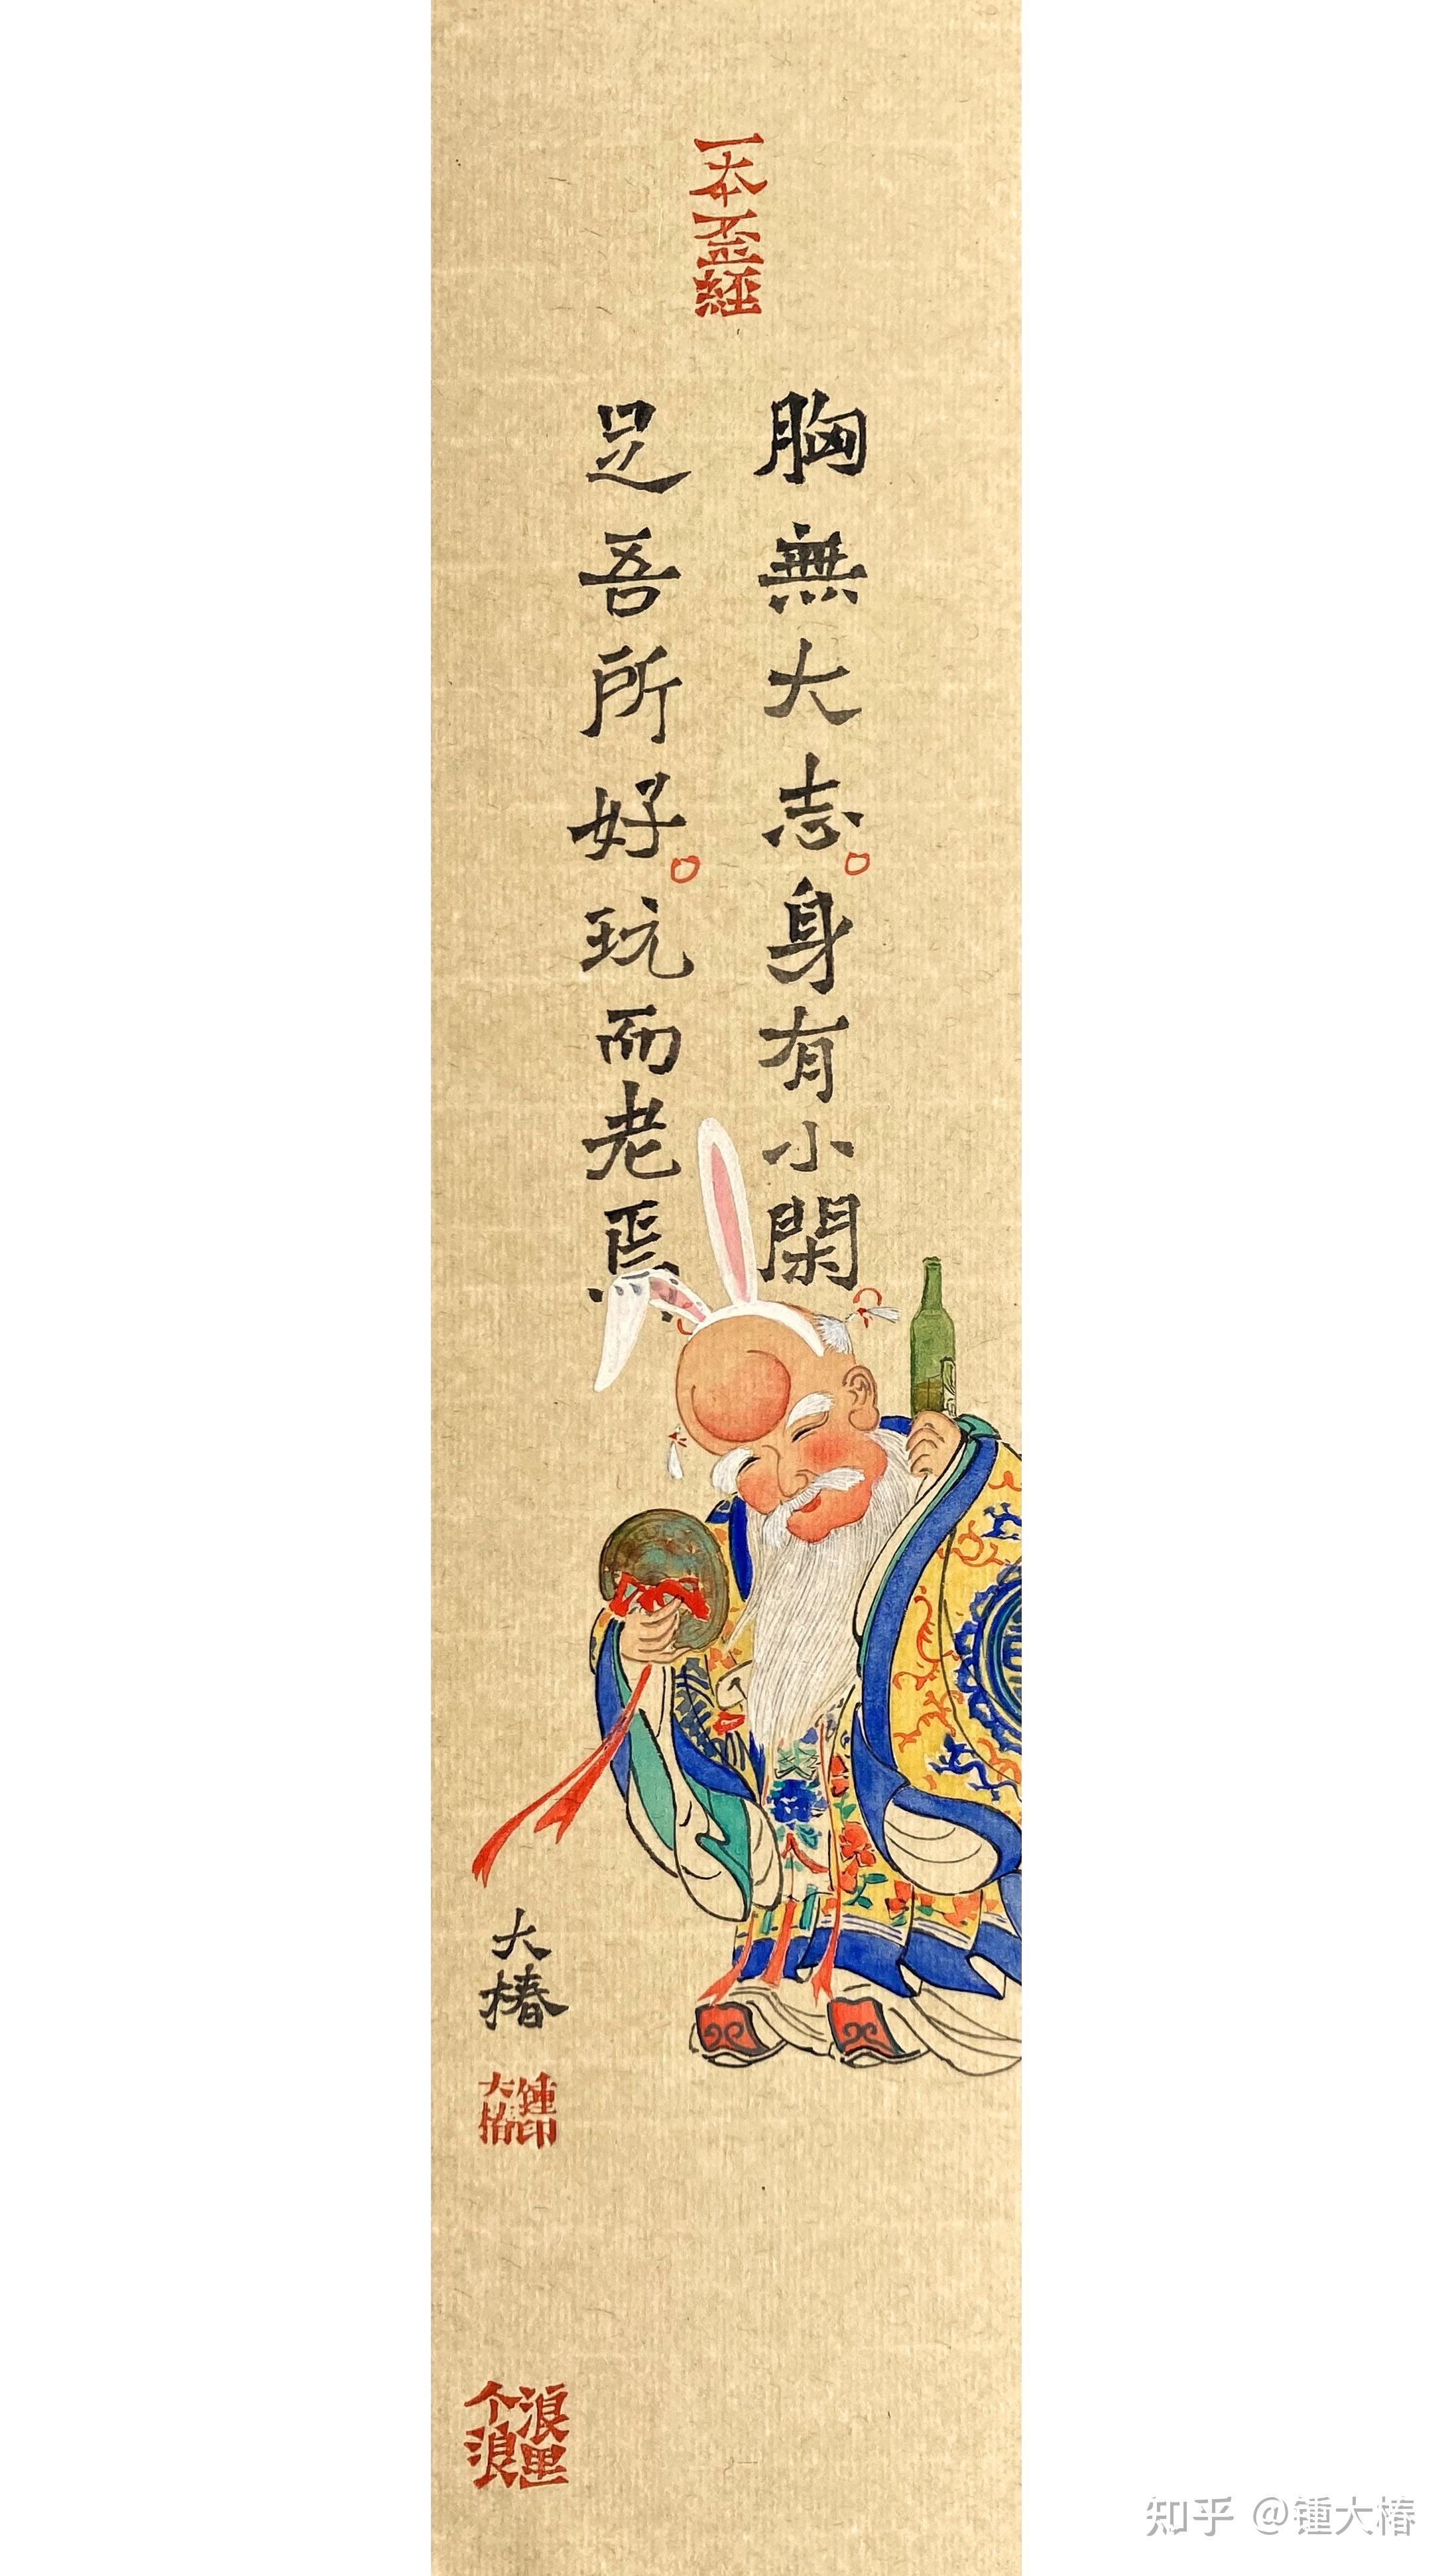 一本歪經
胸無大志身有小閑
足吾所好玩而老焉
大椿
鍾印大椿
浪里个浪
知乎 @锺大椿